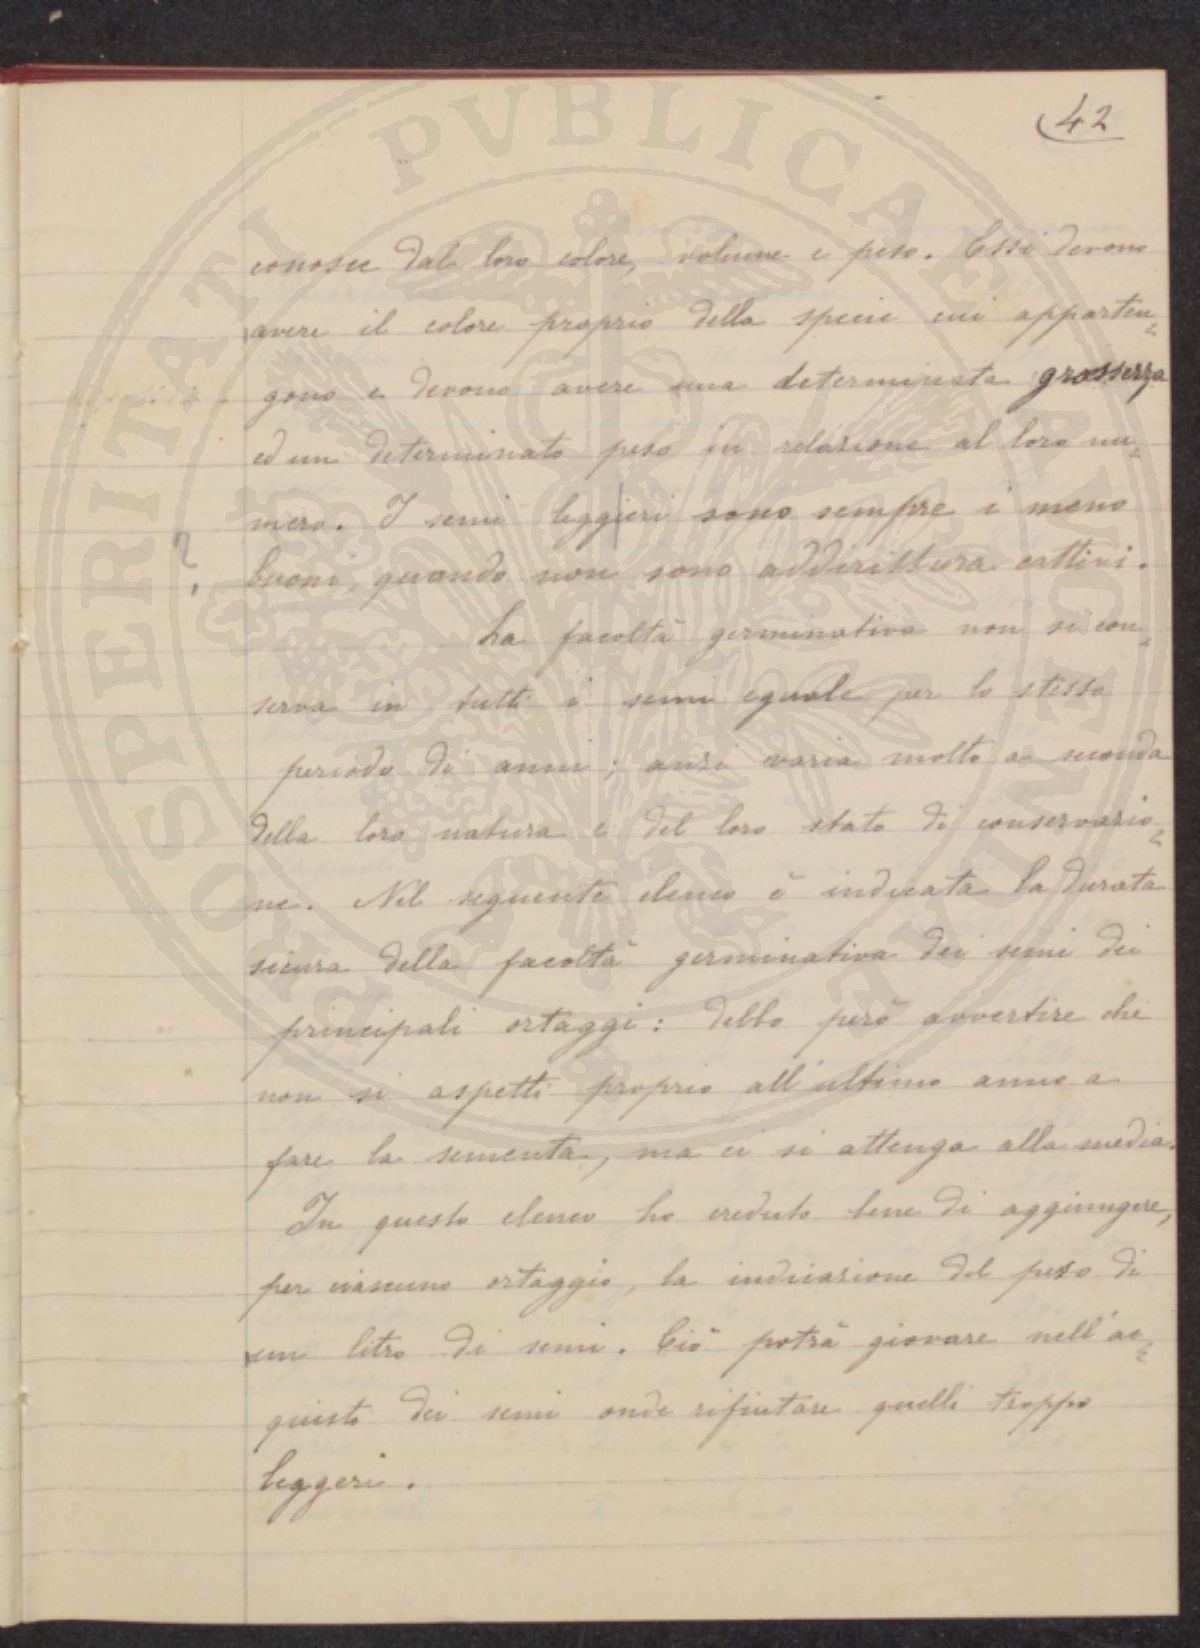 42
conosce dal loro colore, volume e peso. Essi devono
avere il colore proprio della specie cui apparten=
gono e devono avere una determinata grossezza
ed un determinato peso in relazione al loro nu=
mero. I semi leggieri sono sempre i meno
?
buoni, quando non sono addirittura cattivi.
La facoltà germinativa non si con=
serva in tutti i semi eguale per lo stesso
periodo di anni; anzi varia molto a seconda
della loro natura e del loro stato di conservazio=
ne. Nel seguente elenco è indicata la durata
sicura della facoltà germinativa dei semi dei
principali ortaggi: debbo però avvertire che
non si aspetti proprio all'ultimo anno a
fare la sementa, ma ci si attenga alla media.
In questo elenco ho creduto bene di aggiungere,
per ciascuno ortaggio, la indicazione del peso di
un litro di semi. Ciò potrà giovare nell'ac=
quisto dei semi onde rifiutare quelli troppo
leggeri.
PROSPERITATI PVBLICAE AVGENDAE